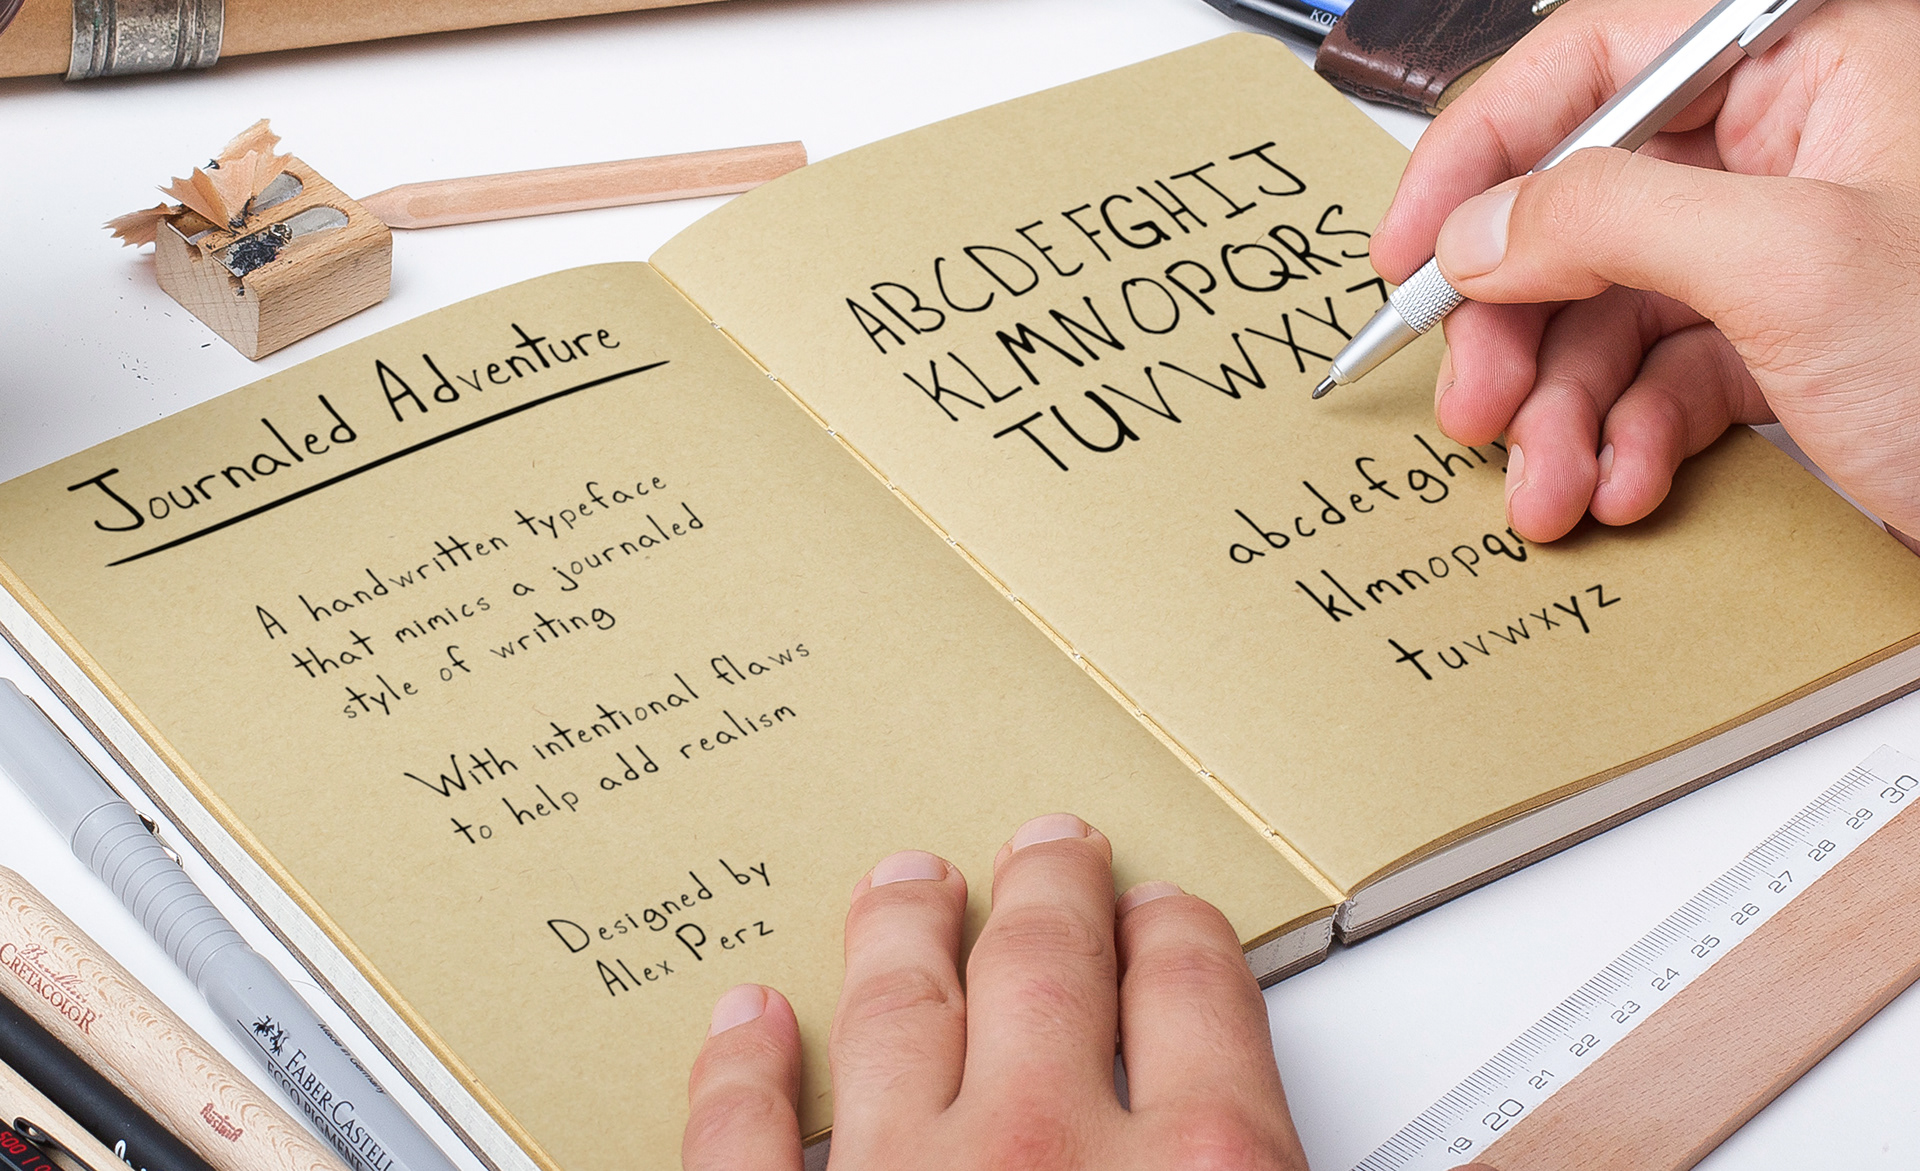 Journaled Adventure
A handwritten typeface
that mimics a journaled
style of writing
With intentional flaws
to help add realism
Designed by
Alex Perz
ABCDEFGHIJ
KLMNOPQRS
TUVWXYZ
abcdefghi
klmnopq
tuvwxyz
KOH
CRETACOLOR
AUSTRIA
Made in Germany
FABER-CASTELL
ECCO PIGMENT
500
19 20 21 22 23 24 25 26 27 28 29 30